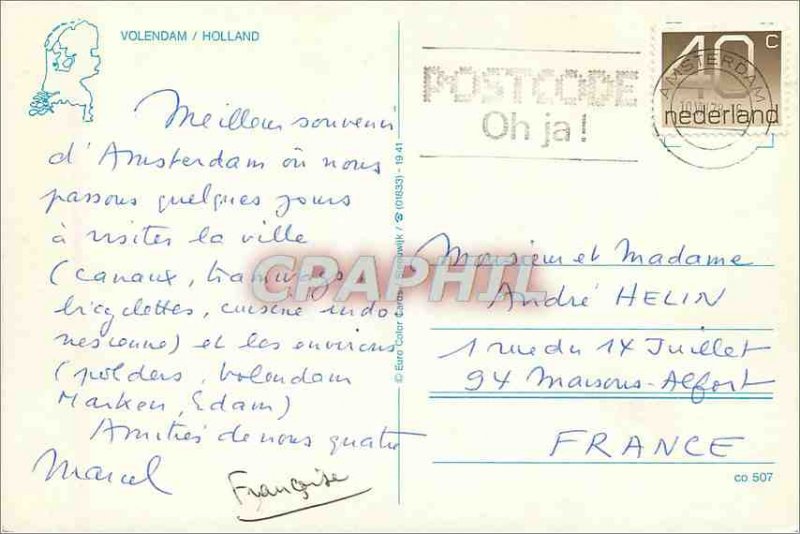 VOLENDAM / HOLLAND
Meilleur souvenir
d'Amsterdam où nous
passons quelques jours
à visiter la ville
(canaux, tramways
bicyclettes, cuisine indo-
nésienne) et les environs
(polders, Volendam
Marken, Edam)
Amitiés de nous quatre
Marcel
Françoise
© Euro Color Cards / ☎ (01833) - 19 41
POSTCODE
Oh ja!
40 c
nederland
AMSTERDAM
Monsieur et Madame
André HELIN
1 rue du 14 Juillet
94 Maisons-Alfort
FRANCE
co 507
CPAPHIL